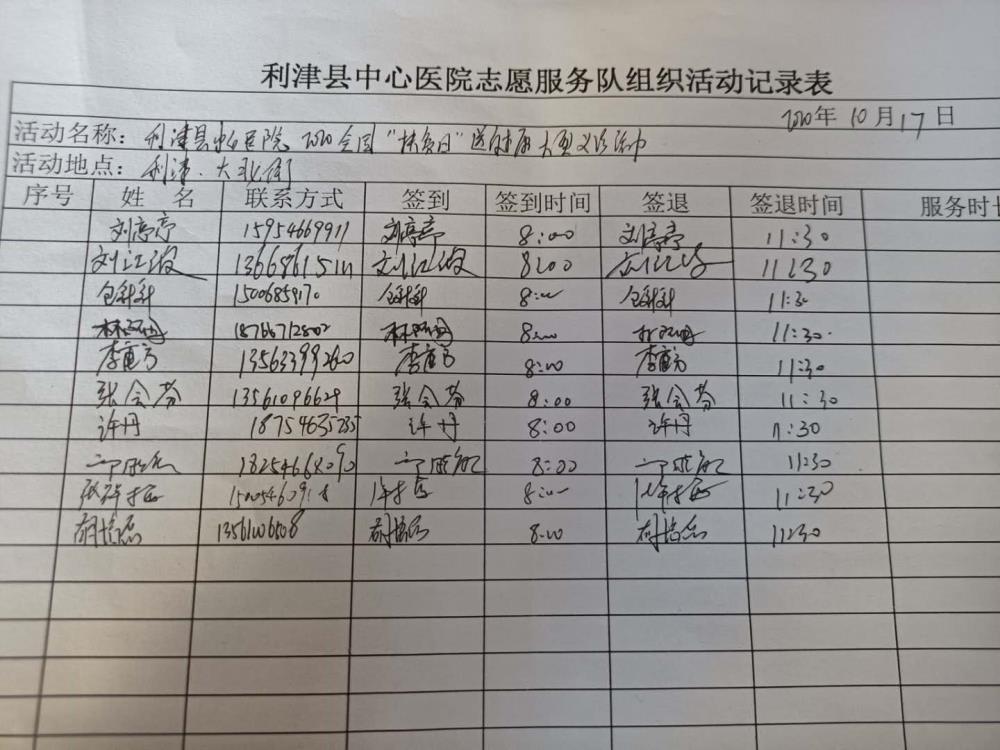 利津县中心医院志愿服务队组织活动记录表
2020年 10月17日
活动名称：利津县中心医院 2020全国“扶贫日”送健康大型义诊活动
活动地点：利津、大北街
序号 姓名 联系方式 签到 签到时间 签退 签退时间 服务时长
刘亭亭 15954669911 刘亭亭 8:00 刘亭亭 11:30
刘江波 刘江波 8:00 11:30
8:00 11:30
18766712802 8:00 11:30
李重方 13563399260 李重方 8:00 李重方 11:30
张会芬 13561096629 张会芬 8:00 张会芬 11:30
许丹 18754635255 许丹 8:00 许丹 11:30
18254668090 8:00 11:30
8:00 11:30
胡培磊 13561006508 胡培磊 8:00 胡培磊 11:30